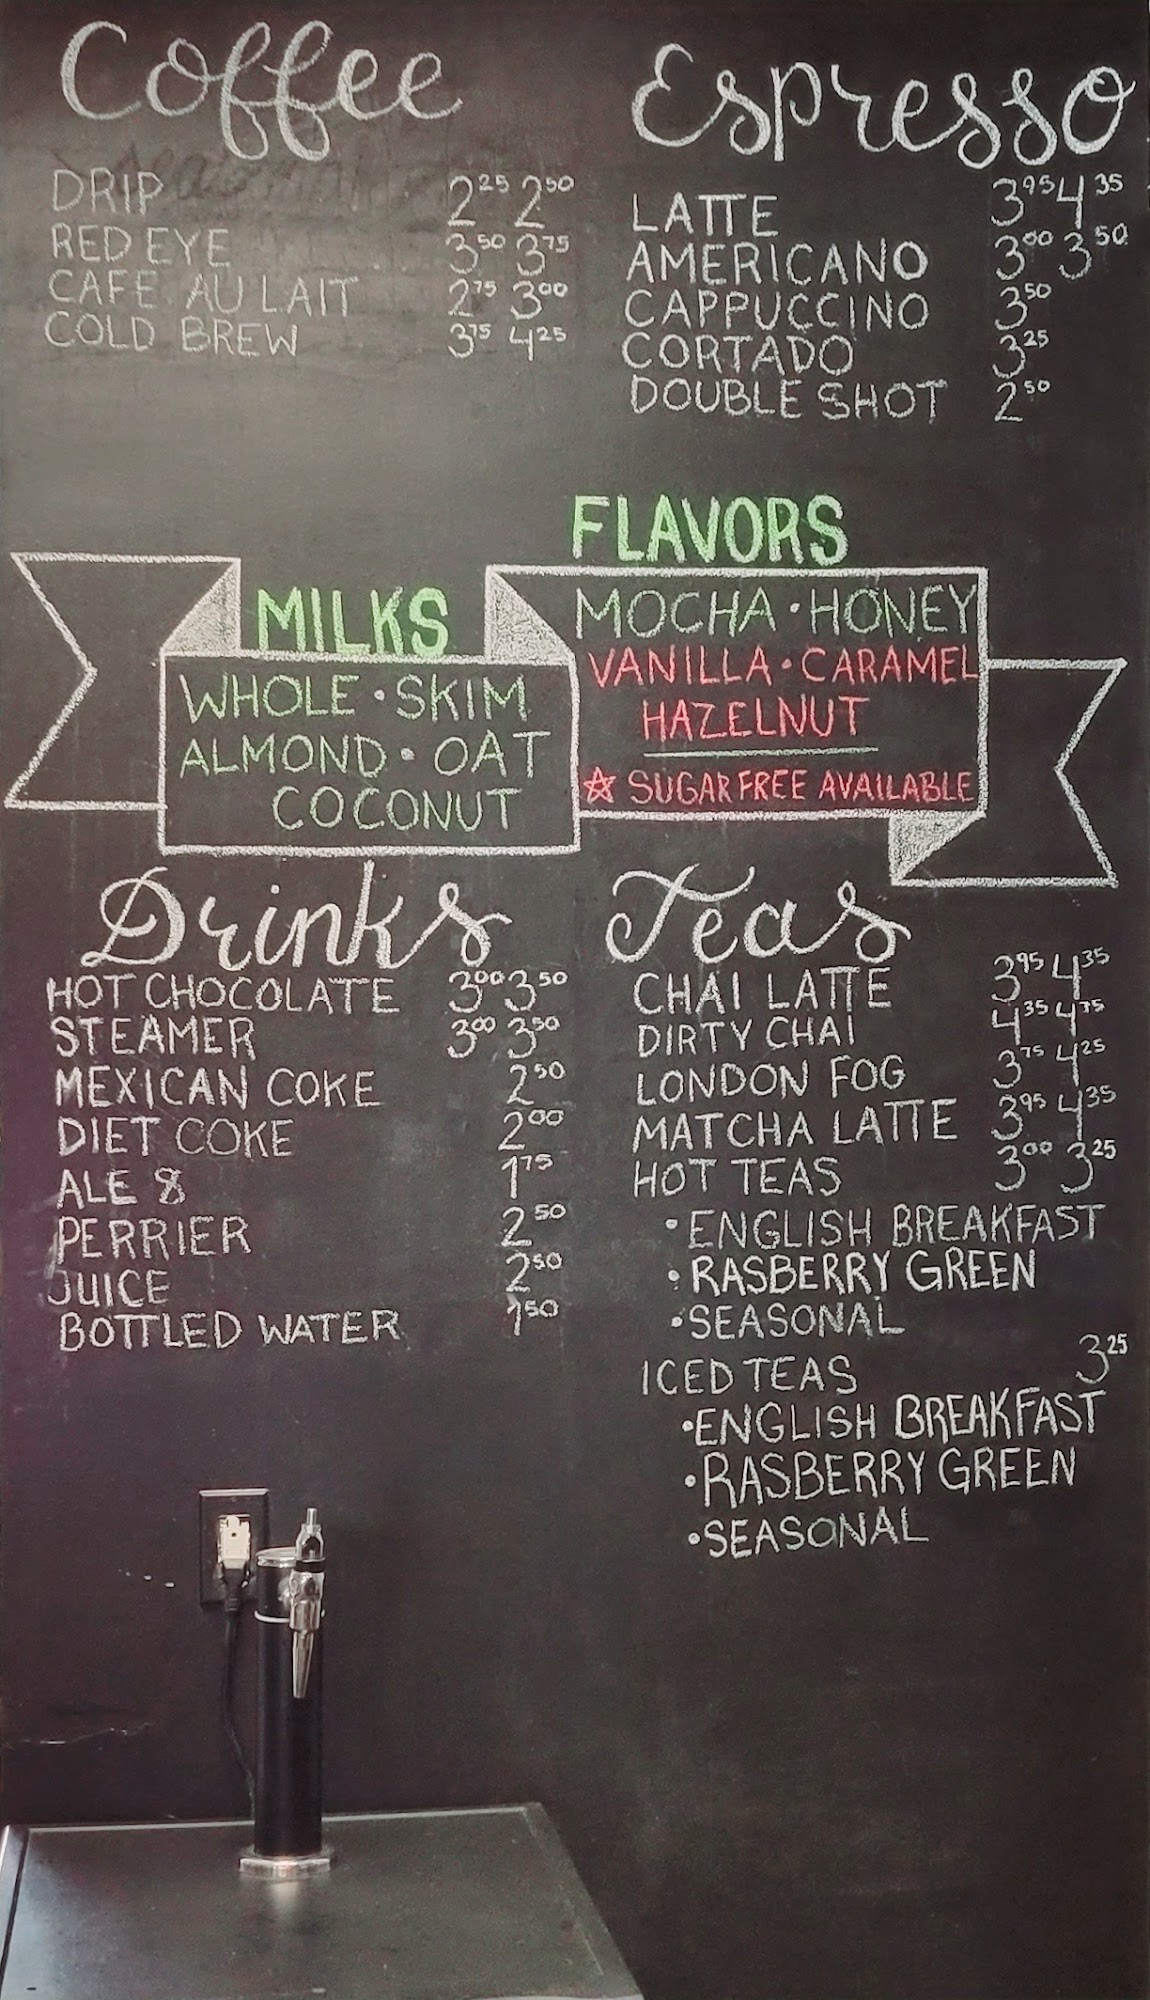 Coffee
DRIP 2.25 2.50
RED EYE 3.50 3.75
CAFE AU LAIT 2.75 3.00
COLD BREW 3.75 4.25
Espresso
LATTE 3.95 4.35
AMERICANO 3.00 3.50
CAPPUCCINO 3.50
CORTADO 3.25
DOUBLE SHOT 2.50
MILKS
WHOLE • SKIM
ALMOND • OAT
COCONUT
FLAVORS
MOCHA • HONEY
VANILLA • CARAMEL
HAZELNUT
☆ SUGAR FREE AVAILABLE
Drinks
HOT CHOCOLATE 3.00 3.50
STEAMER 3.00 3.50
MEXICAN COKE 2.50
DIET COKE 2.00
ALE 8 1.75
PERRIER 2.50
JUICE 2.50
BOTTLED WATER 1.50
Teas
CHAI LATTE 3.95 4.35
DIRTY CHAI 4.35 4.75
LONDON FOG 3.75 4.25
MATCHA LATTE 3.95 4.35
HOT TEAS 3.00 3.25
• ENGLISH BREAKFAST
• RASBERRY GREEN
• SEASONAL
ICED TEAS 3.25
• ENGLISH BREAKFAST
• RASBERRY GREEN
• SEASONAL